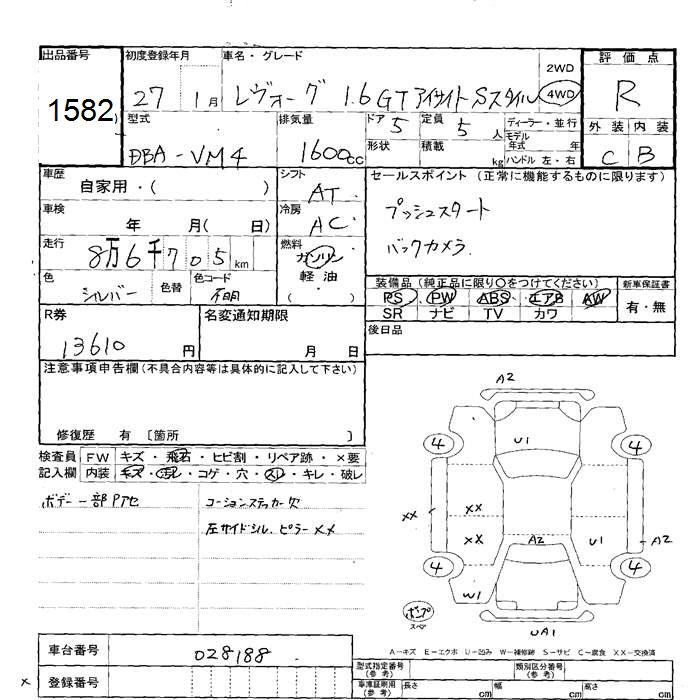 出品番号 初度登録年月 車名・グレード 評価点
1582
27 1月 レヴォーグ 1.6GT アイサイト Sスタイル 2WD 4WD R
型式 排気量 ドア 5 定員 5人 ディーラー・並行 外装 内装
モデル年式 年
DBA-VM4 1600cc 形状 積載 kg ハンドル 左・右 C B
車歴 シフト セールスポイント (正常に機能するものに限ります)
自家用・( ) AT
車検 冷房 プッシュスタート
年 月( 日) AC
走行 燃料 バックカメラ
8万6千705km ガソリン
色 色替 色コード 軽油 装備品(純正品に限り○をつけてください) 新車保証書
シルバー 不明 ( ) PS PW ABS エアB AW 有・無
SR ナビ TV カワ
R券 名変通知期限 後日品
13610円 月 日
注意事項申告欄(不具合内容等は具体的に記入して下さい)
修復歴 有 〔箇所 〕
検査員 FW キズ・飛石・ヒビ割・リペア跡・×要
記入欄 内装 キズ・汚レ・コゲ・穴・スレ・キレ・破レ
ボデー一部Pアセ コーションステッカー欠
左サイドシル.ピラーXX
A2
U1
4 4
XX XX
XX A2 U1 A2
4 4
W1
ポンプ
スペア
UA1
A-キズ E-エクボ U-凹み W-補修跡 S-サビ C-腐食 XX-交換済
車台番号 028188 型式指定番号(参考) 類別区分番号(参考)
x 登録番号 車庫証明用(参考) 長さ cm 幅 cm 高さ cm